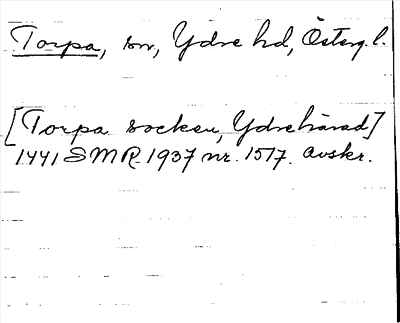 Torpa, sn, Ydre hd, Österg. l.
[Torpa socken, Ydre härad]
1441 SMR 1937 nr. 1517. avskr.